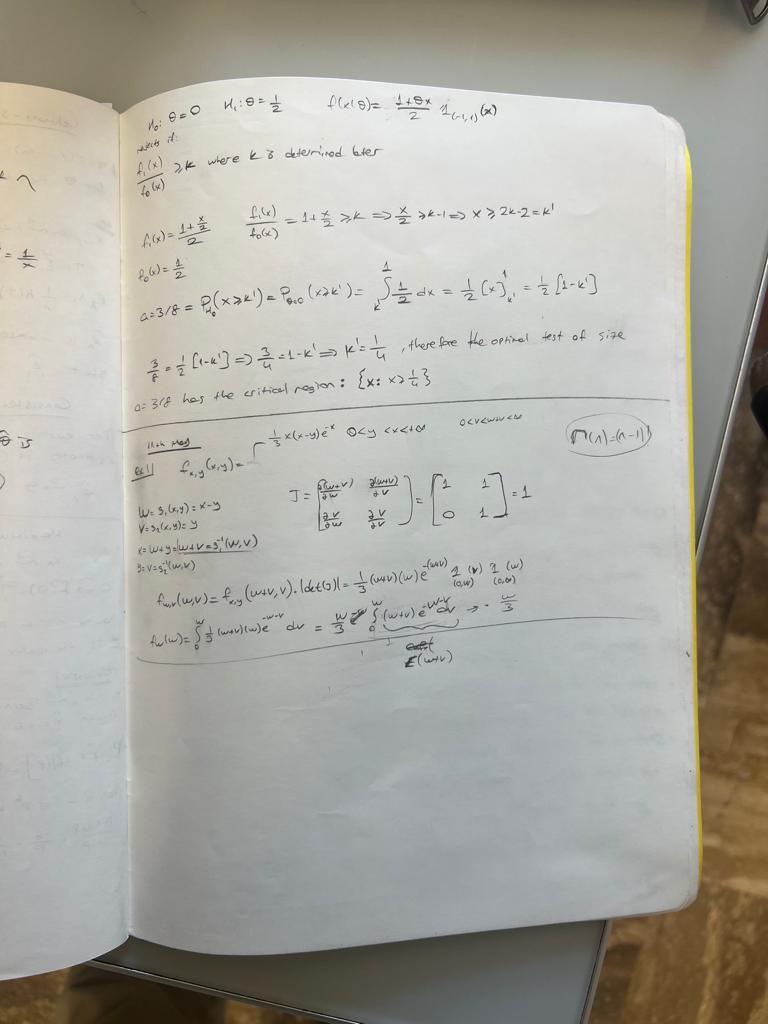 H₀: θ=0   H₁: θ=1/2   f(x|θ)= (1+θx)/2 1₍₋₁,₁₎(x)
rejects if:
f₁(x)/f₀(x) ≥k where k is determined later
f₁(x)= (1+x/2)/2   f₁(x)/f₀(x) = 1+x/2 ≥k ⟹ x/2 ≥k-1 ⟹ x ≥ 2k-2=k'
f₀(x)= 1/2
a=3/8 = P_H₀(x≥k') = P_θ=0 (x≥k') = ∫_k'^1 1/2 dx = 1/2 [x]_k'^1 = 1/2 [1-k']
3/8 = 1/2 [1-k'] ⟹ 3/4 = 1-k' ⟹ k'= 1/4 , therefore the optimal test of size
a=3/8 has the critical region: {x: x≥1/4}
11th May
ex 11   f_x,y(x,y)= { 1/3 x(x-y)e^-x   0<y<x<+∞   0<v<w+v<∞   Γ(n)=(n-1)!
W= g₁(x,y)= x-y
V= g₂(x,y)= y
J = [∂(w+v)/∂w  ∂(w+v)/∂v ; ∂v/∂w  ∂v/∂v] = [1 1 ; 0 1] = 1
x= w+y = w+v = g₁⁻¹(w,v)
y= v= g₂⁻¹(w,v)
f_w,v(w,v)= f_x,y(w+v,v)·|det(J)|= 1/3 (w+v)(w) e^-(w+v) 1_(0,∞)(v) 1_(0,∞)(w)
f_w(w)= ∫_0^w 1/3 (w+v)(w)e^-w-v dv = w/3 ∫_0^w (w+v) e^-w-v dv → · w/3
E(w+v)
= 1/x
θ̂ is